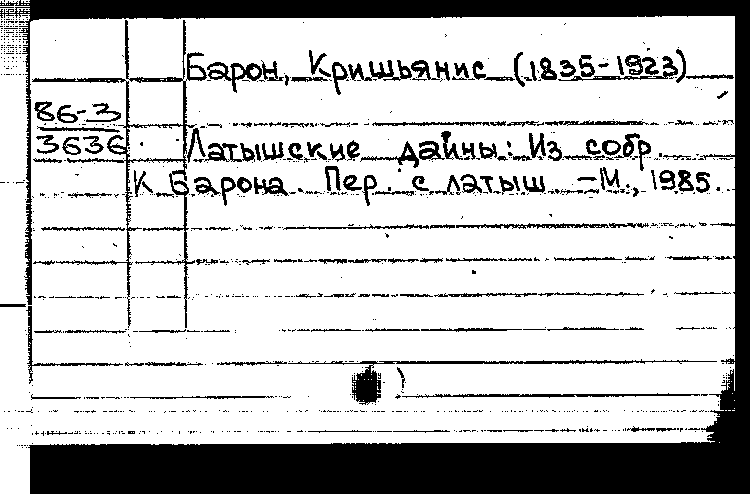 Барон, Кришьянис (1835-1923)
86-3
3636
Латышские дайны: Из собр.
К Барона. Пер. с латыш. -М., 1985.